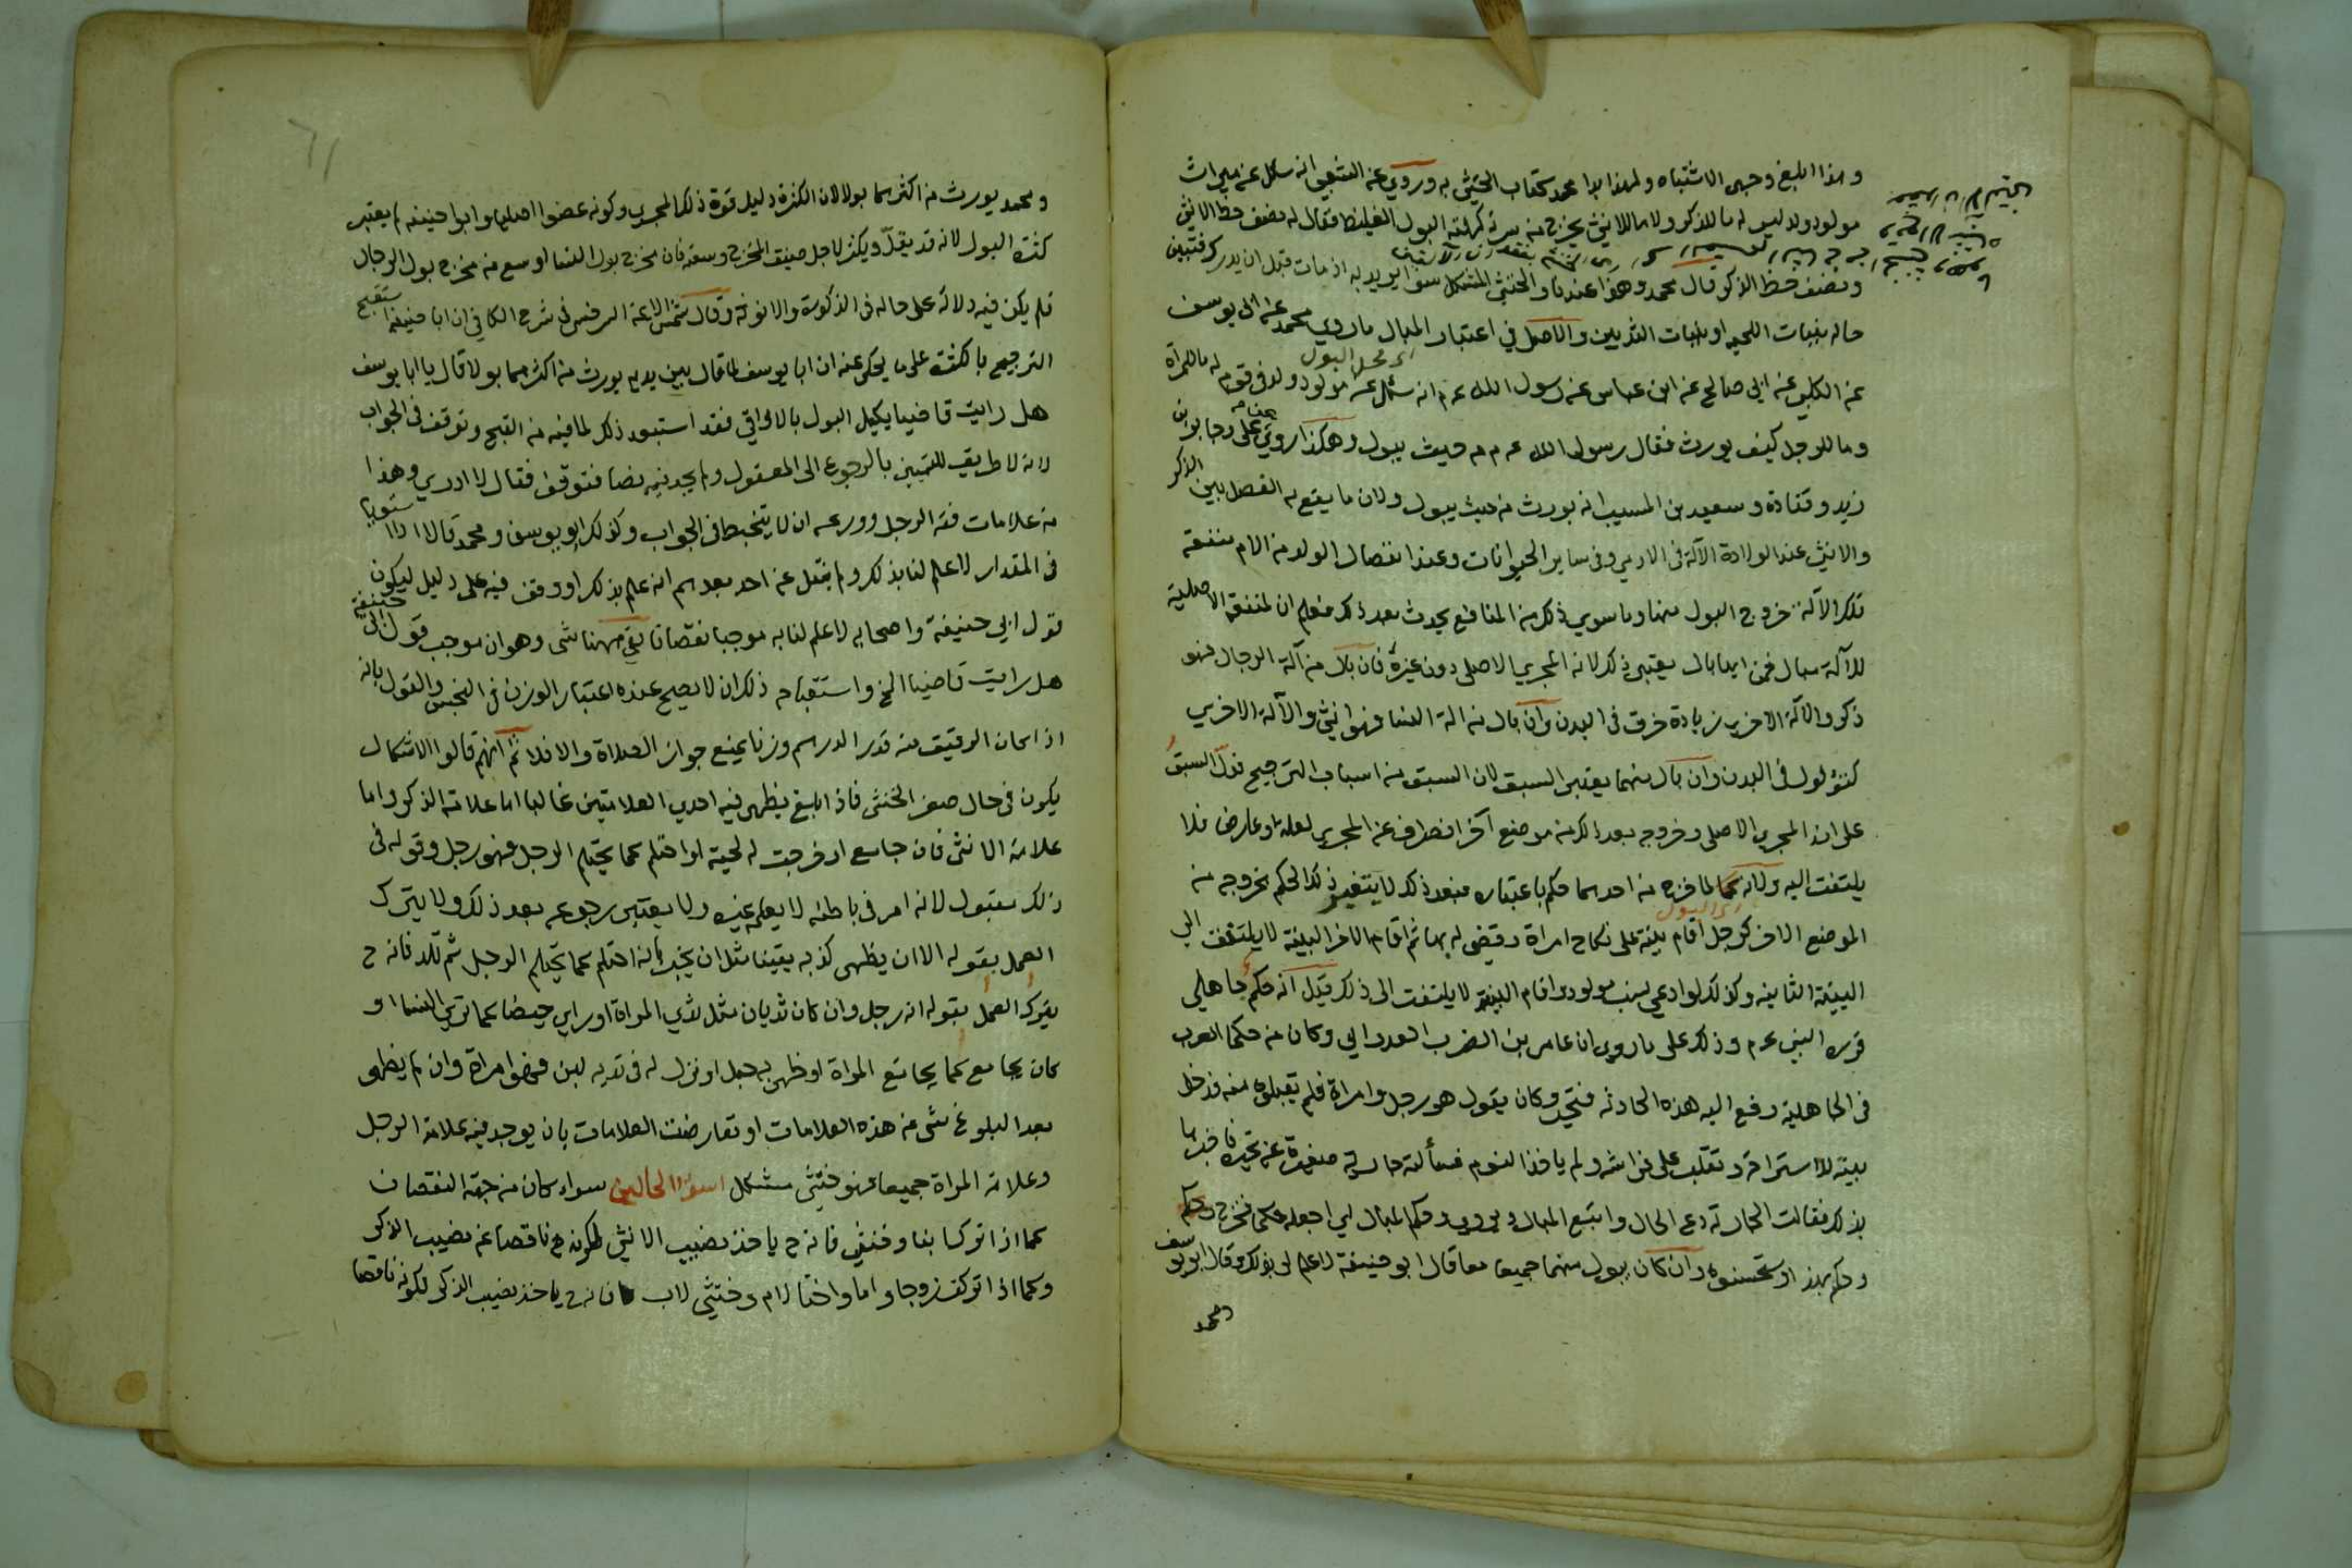 وهذا ابلغ وجهى الاشتباه ولهذا بدا محمد كتاب الخنثى به وروي عن الشعبى انه سئل عن ميراث
مولود ولد ليس له ما للذكر ولا ما للانثى يخرج من سرته كهيئة البول الغليظ فقال له نصف حظ الانثى
ونصف حظ الذكر قال محمد وهذا عندنا والخنثى المشكل سوا يريد به اذ مات قبل ان يدرك فتبين
حاله بنبات اللحية او نبات الثديين والاصل في اعتبار المبال ما روي محمد عن ابى يوسف
اى محل البول
عن الكلبى عن ابي صالح عن ابن عباس عن رسول الله عم انه سئل عن مولود ولد فى قوم له ما للمرأة
وما للرجل كيف يورث فقال رسول الله عم من حيث يبول وهكذا روي عن على وجابر بن
زيد وقتادة وسعيد بن المسيب انه يورث من حيث يبول ولان ما يقع به الفصل بين الذكر
والانثى عند الولادة الآلة فى الادمي وفى ساير الحيوانات وعند انفصال الولد من الام منفعة
تلك الآلة خروج البول منها وما سوي ذلك من المنافع يحدث بعد ذلك فعلم ان المنفعة الاصلية
للآلة مبال فمن ايها بال يعتبر ذلك لانه المجري الاصلى دون غيره فان بال من آلة الرجال فهو
ذكر والآلة الاخري زيادة خرق فى البدن وان بال من الة النسا فهو انثى والآلة الاخري
كثؤلول فى البدن وان بال منهما يعتبر السبق لان السبق من اسباب الترجيح فدل السبق
على انه المجري الاصلى وخروجه بعد ذلك من موضع آخر انصراف عن المجري لعلة او عارض فلا
يلتفت اليه ولانه كما لما خرج من احدهما حكم باعتباره فبعد ذلك لا يتغير ذلك الحكم بخروجه من
اى البول
الموضع الاخر كرجل اقام بينة على نكاح امراة وقضى له بها ثم اقام الاخر البينة لا يلتفت الى
البينة الثانية وكذلك لو ادعى نسب مولود واقام البينة لا يلتفت الى ذلك قيل انه حكم جاهلى
قرره النبى عم وذلك على ما روي ان عامر بن الضرب العدواني وكان من حكما العرب
فى الجاهلية رفع اليه هذه الحادثة فتحير وكان يقول هو رجل وامراة فلم يقبلوه منه فدخل
بيته للاستراحة وتقلب على فراشه ولم ياخذ النوم فسألته جارية صغيرة عن تحيره فاخبرها
بذلك فقالت الجارية دع الحال واتبع المبال ويروي وحكم المبال اي اجعله حكما فخرج وحكم
وحكم بهذا واستحسنوه وان كان يبول منهما جميعا معا قال ابو حنيفة لا علم لى بذلك وقال ابو يوسف
ومحمد
ومحمد يورث من اكثرهما بولا لان الكثرة دليل قوة ذلك المجري وكونه عضوا اصليا وابو حنيفة لم يعتبر
كثرة البول لانه قد يقل ويكثر لاجل ضيق المخرج وسعته فان مخرج بول النسا اوسع من مخرج بول الرجال
فلم يكن فيه دلالة على حاله فى الذكورة والانوثة وقال شمس الائمة السرخسى فى شرح الكافي ان ابا حنيفة استقبح
الترجيح بالكثرة على ما يحكى عنه ان ابا يوسف لما قال بين يديه يورث من اكثرهما بولا قال يا ابا يوسف
هل رايت قاضيا يكيل البول بالاواقي فقد استبعد ذلك لما فيه من القبح وتوقف فى الجواب
لانه لا طريق للتمييز بالرجوع الى المعقول ولم يجد فيه نصا فتوقف فقال لا ادري وهذا
من علامات فقه الرجل وورعه ان لا يتخبط فى الجواب وكذلك ابو يوسف ومحمد قالا اذا استويا
فى المقدار لا علم لنا بذلك ولم ينقل عن احد بعدهم انه علم بذلك او وقف فيه على دليل ليكون
قول ابي حنيفة واصحابه لا علم لنا به موجبا نقصانا بقي ههنا شى وهو ان موجب قول ابى حنيفة
هل رايت قاضيا الخ واستقباحه ذلك ان لا يصح عنده اعتبار الوزن فى النجس والقول بانه
اذا كان الرقيق منه قدر الدرهم وزنا يمنع جواز الصلاة والا فلا ثم انهم قالوا الاشكال
يكون فى حال صغر الخنثى فاذا بلغ يظهر فيه احدي العلامتين غالبا اما علامة الذكر واما
علامة الانثى فان جامع او خرجت له لحية او احتلم كما يحتلم الرجل فهو رجل وقوله فى
ذلك مقبول لانه امر فى باطنه لا يعلمه غيره ولا يعتبر رجوعه بعد ذلك ولا يترك
العمل بقوله الا ان يظهر كذبه يقينا مثل ان يخبر بانه احتلم كما يحتلم الرجل ثم تلد فانه ح
يترك العمل بقوله انه رجل وان كان ثديان مثل ثدي المراة او راي حيضا كما تري النسا او
كان يجامع كما يجامع المراة او ظهر به حبل او نزل له فى ثديه لبن فهو امراة وان لم يظهر
بعد البلوغ شى من هذه العلامات او تعارضت العلامات بان يوجد فيه علامة الرجل
وعلامة المراة جميعا فهو خنثى مشكل اسوأ الحالين سواء كان من جهة النقصان
كما اذا ترك ابنا وخنثى فانه ح ياخذ نصيب الانثى لكونه ح ناقصا عن نصيب الذكر
وكما اذا تركت زوجا واما واختا لام وخنثى لاب فانه ح ياخذ نصيب الذكر لكونه ناقصا